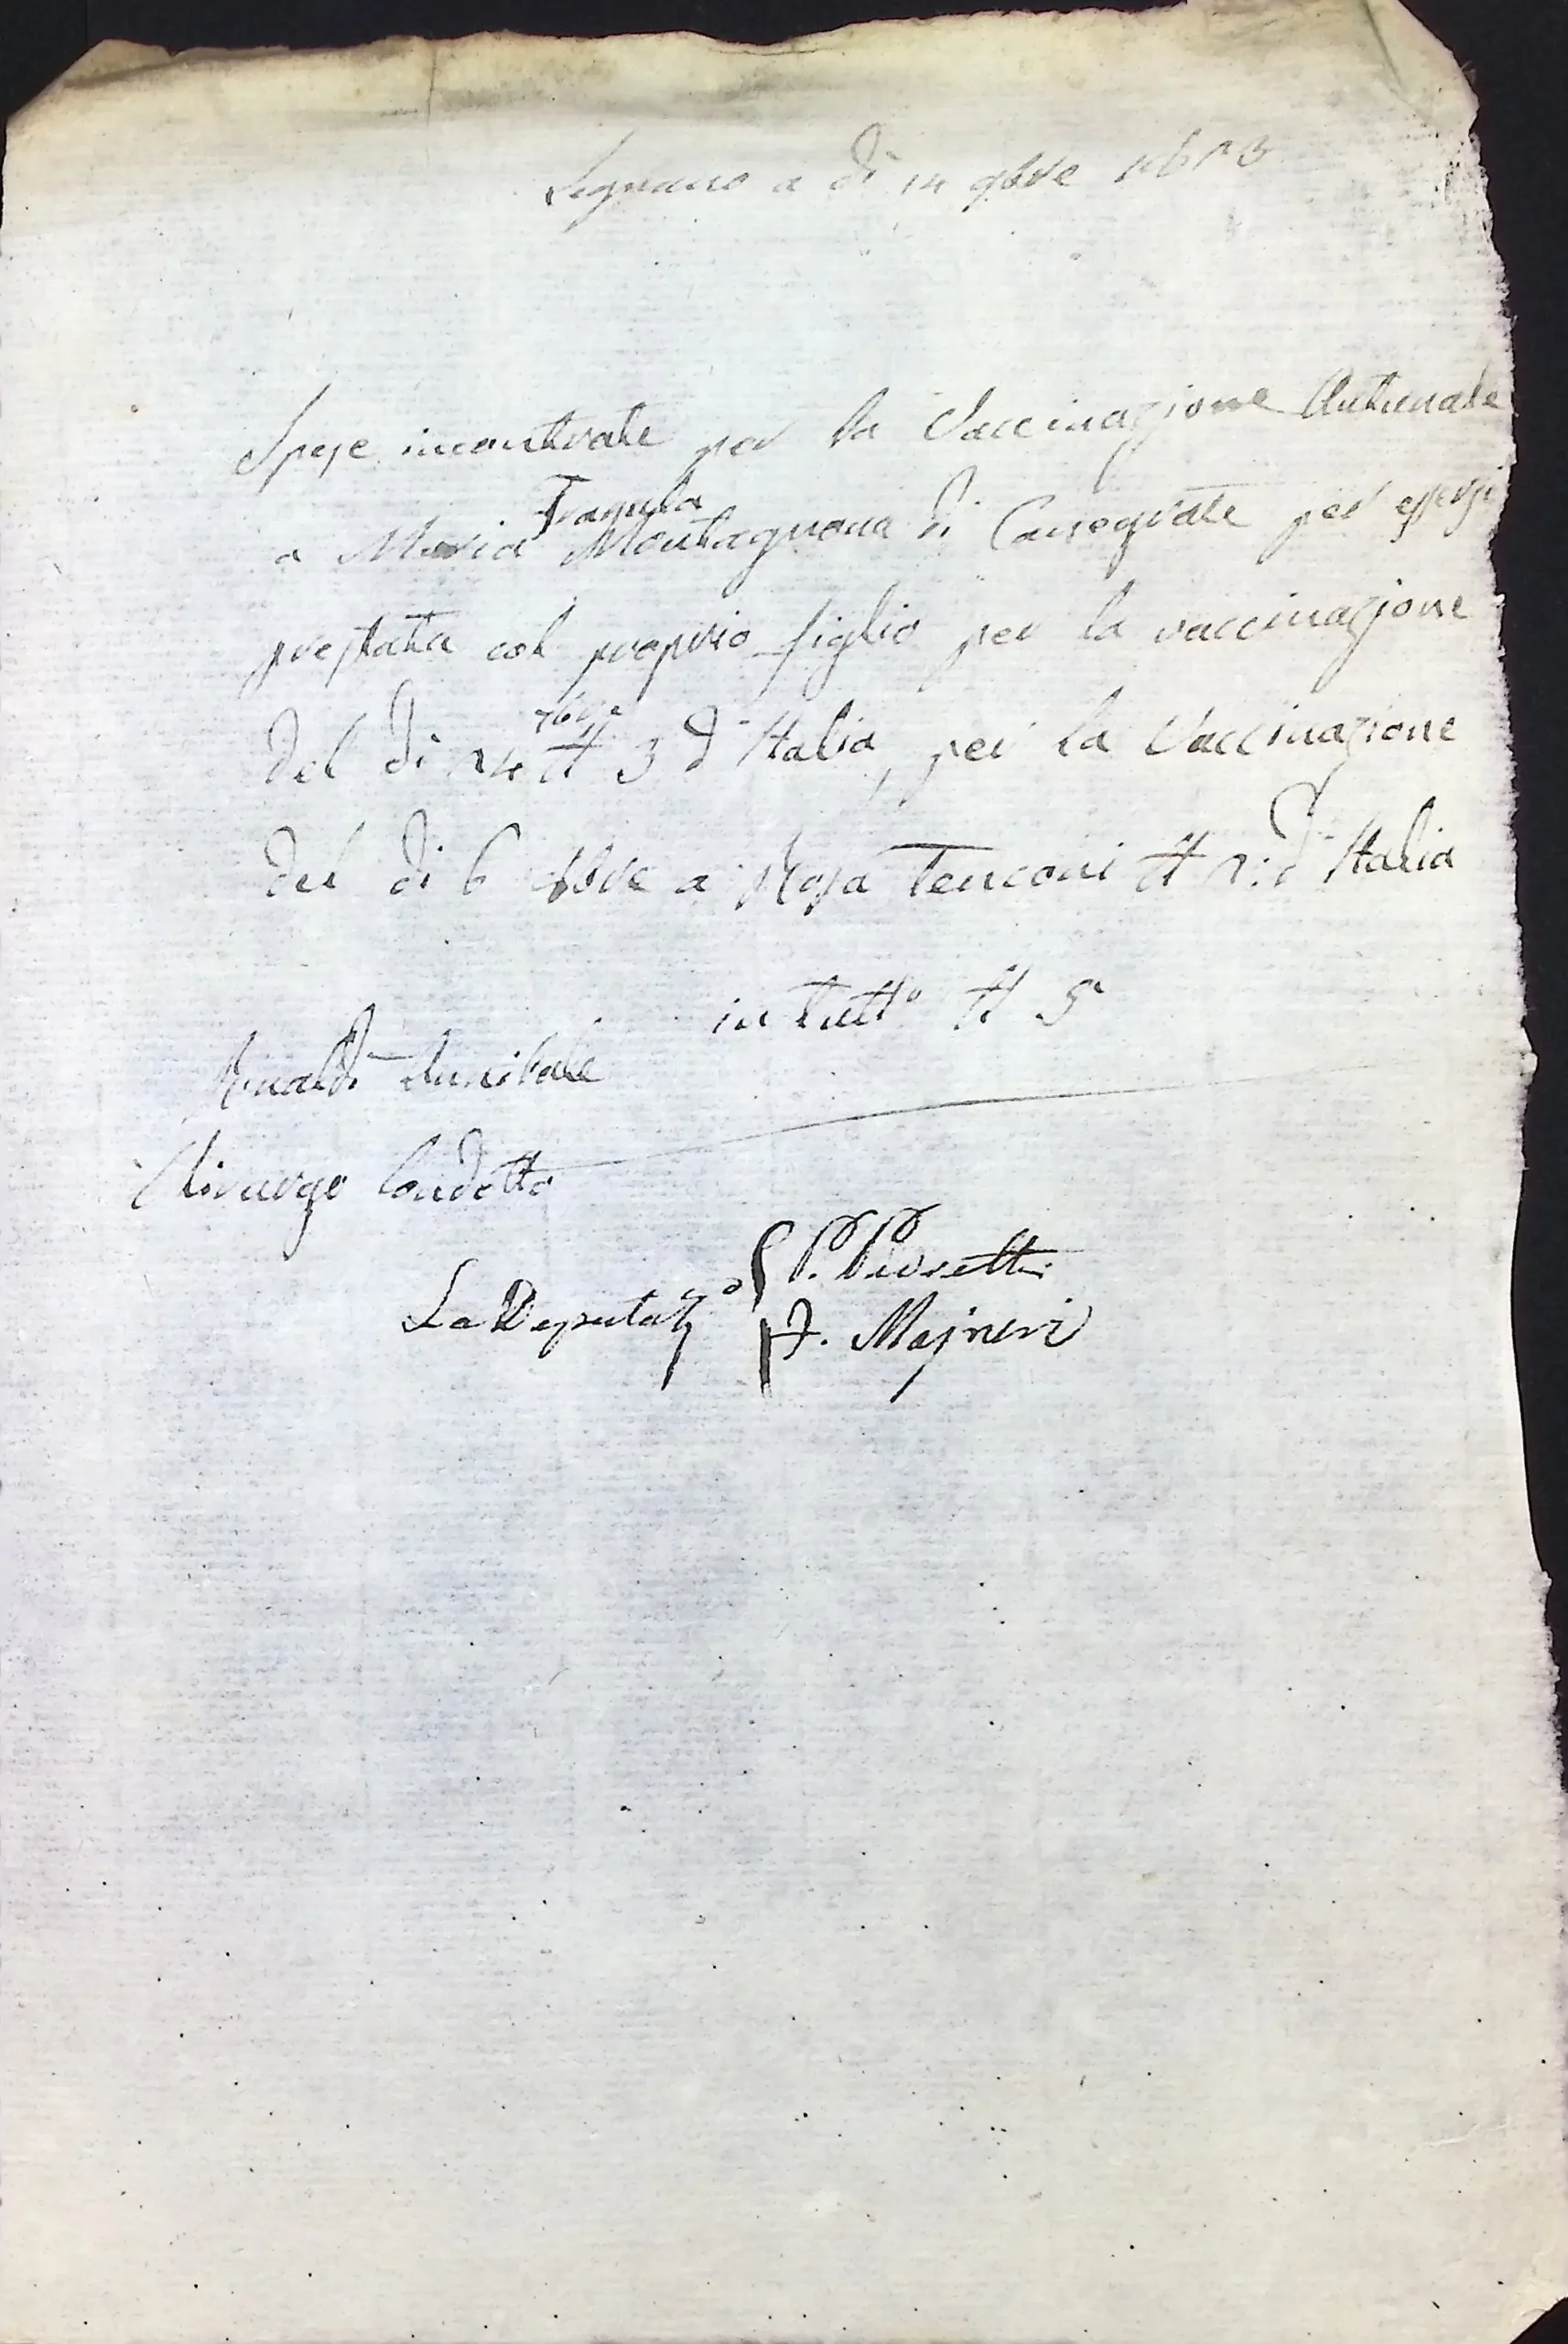 Legnano a di 14 9bre 1813
Spese incontrate per la Vaccinazione Autunale
a Maria Fragula Montagnana di Canegrate per essersi
prestata col proprio figlio per la vaccinazione
del di 24 7bre ₶ 3 d'Italia, per la Vaccinazione
del di 6 8bre a Rosa Tenconi ₶ 2: d'Italia
in tutto ₶ 5
Rinaldi Annibale
Chirurgo Condotto
La Deputaz.e P.
F. Majneri